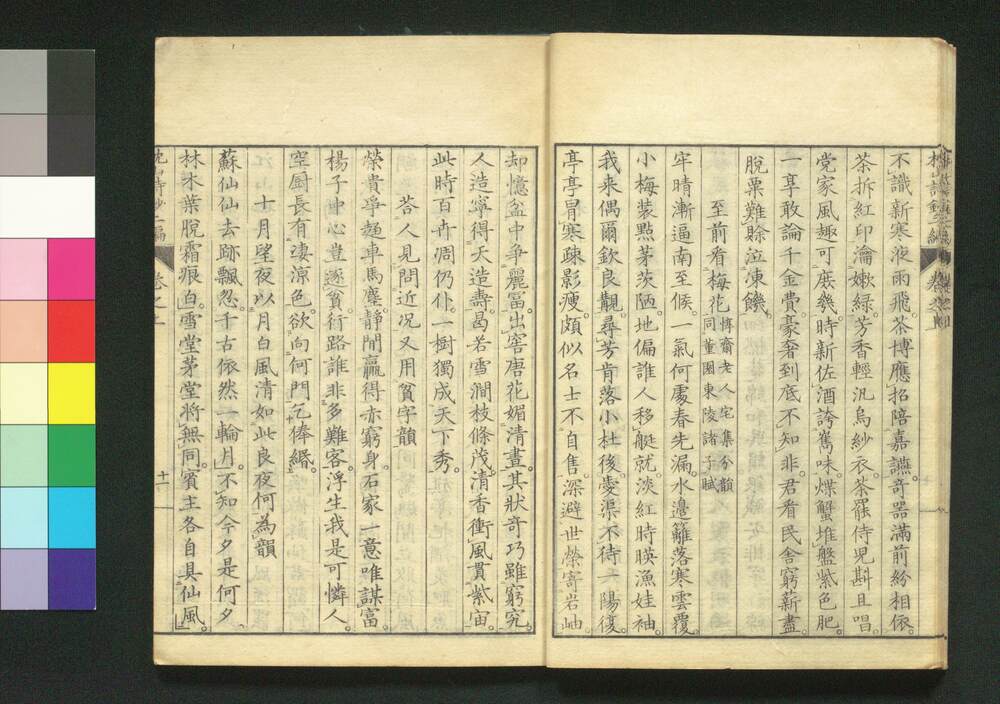 不識新寒夜雨飛。茶博應招陪嘉讌。奇器滿前紛相依。
茶拆紅印瀹嫩緑。芳香輕汎烏紗衣。茶罷侍児斟且唱。
党家風趣可庶幾。時新佐酒誇雋味。煠蟹堆盤紫色肥。
一享敢論千金費。豪奢到底不知非。君看民舎窮薪盡。
脱粟難賒泣凍饑。
至前看梅花
博齋老人宅集分韻
同董園東陵諸子賦
牢晴漸逼南至候。一氣何處春先漏。水邊籬落寒雲覆。
小梅装㸃茅茨陋。地偏誰人移艇就。淡紅時暎漁娃袖。
我来偶爾欽良觀。尋芳肯落小杜後。変渠不待一陽復。
亭亭冒寒疎影瘦。頗似名士不自售。深避世榮寄岩岫。
却憶盆中争麗冨。出窖唐花媚清晝。其状奇巧雖窮究。
人造寧得天造壽。曷若雪澗枝條茂。清香衝風貫紫宙。
此時百卉凋仍仆。一樹獨成天下秀。
荅人見問近况又用貧字韻
榮貴争趨車馬塵。靜閒贏得赤窮身。石家一意唯謀富。
楊子中心豈逐貧。行路誰非多難客。浮生我是可憐人。
空厨長有凄涼色。欲向何門乞俸緡。
十月望夜以月白風清如此良夜何為韻
蘇仙仙去跡飄忽。千古依然一輪月。不知今夕是何夕。
林木葉脱霜痕白。雪堂茅堂將無同。賓主各自具仙風。
十一